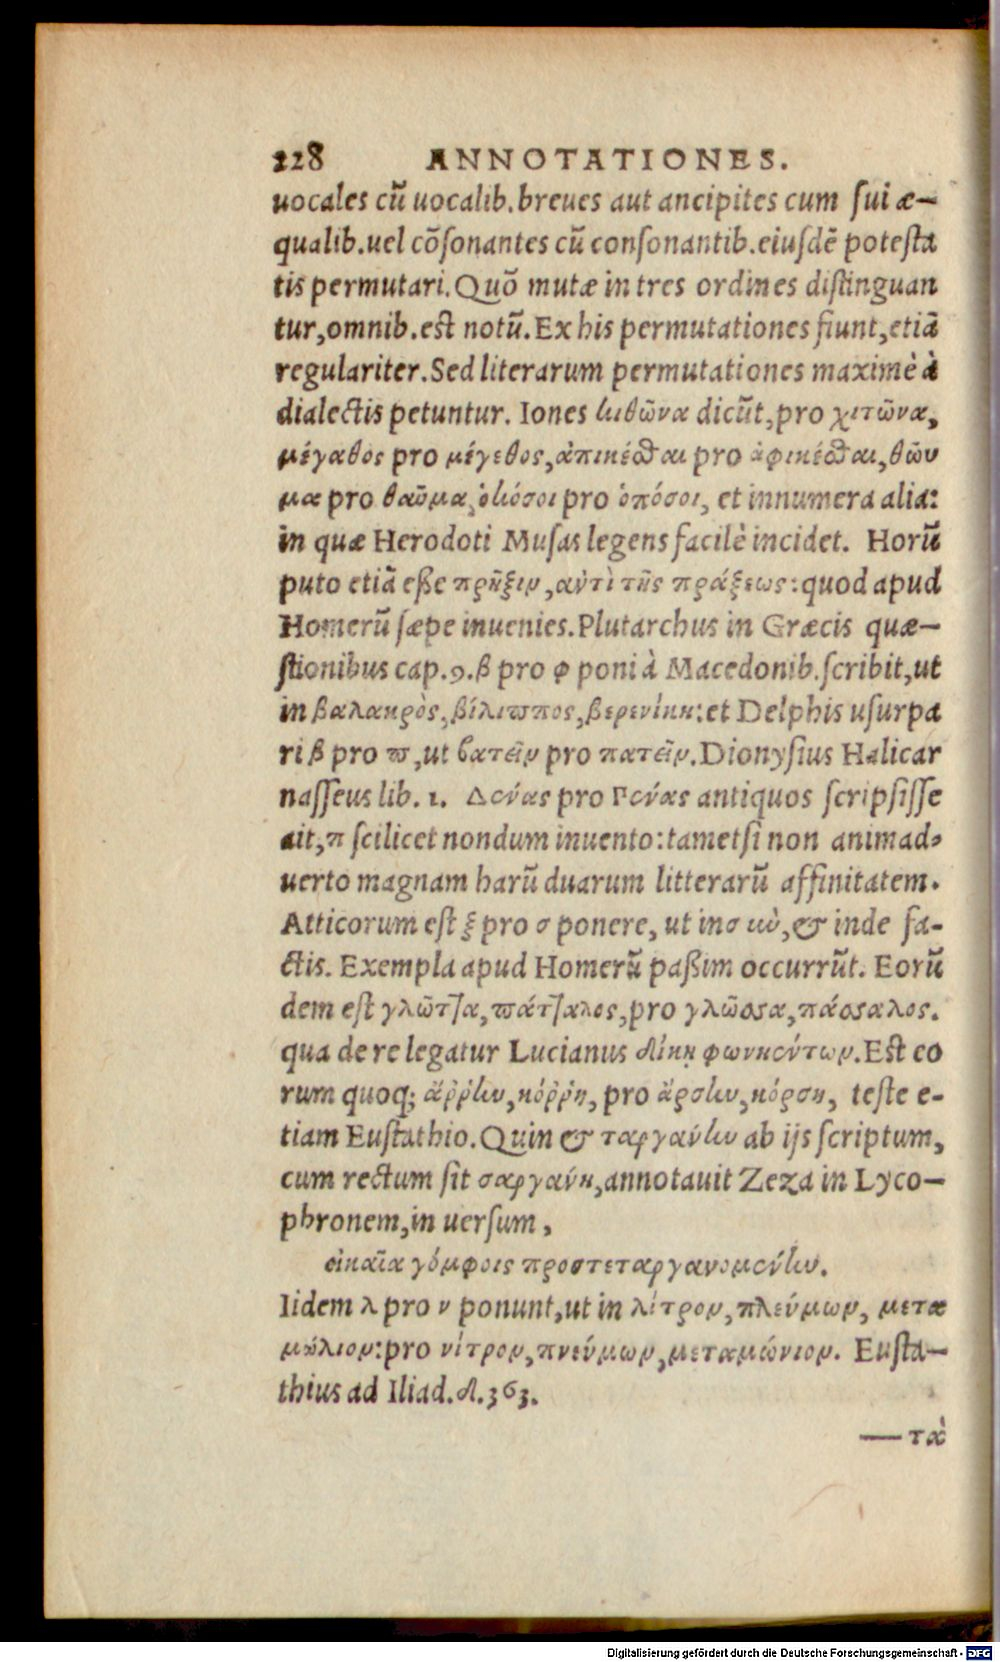 228 ANNOTATIONES.
uocales cũ uocalib.breues aut ancipites cum ſui æ—
qualib.uel cõſonantes cũ conſonantib.eiuſdẽ poteſta
tis permutari.Quõ mutæ in tres ordines diſtinguan
tur,omnib.eſt notũ.Ex his permutationes fiunt,etiã
regulariter.Sed literarum permutationes maximè à
dialectis petuntur. Iones κιθῶνα dicũt,pro χιτῶνα,
μέγαθος pro μέγεθος,ἀπικέσθαι pro ἀφικέσθαι,θῶυ
μα pro θαῦμα,ὁκόσοι pro ὁπόσοι, et innumera alia:
in quæ Herodoti Muſas legens facilè incidet. Horũ
puto etiã eſſe πρῆξιν,ἀντὶ τῆς πράξεως:quod apud
Homerũ ſæpe inuenies.Plutarchus in Græcis quæ—
ſtionibus cap.9.β pro φ poni à Macedonib.ſcribit,ut
in βαλακρὸς,βίλιππος,βερενίκη:et Delphis uſurpa
ri β pro π,ut βατεῖν pro πατεῖν.Dionyſius Halicar
naſſeus lib. 1. Δενάς pro Γενάς antiquos ſcripſiſſe
ait,π ſcilicet nondum inuento:tametſi non animad-
uerto magnam harũ duarum litterarũ affinitatem.
Atticorum eſt ξ pro σ ponere, ut in σκὺ,& inde fa-
ctis. Exempla apud Homerũ paßim occurrũt. Eorũ
dem eſt γλῶττα,πάτταλος,pro γλῶσσα,πάσσαλος.
qua de re legatur Lucianus δίκη φωνηέντων.Eſt eo
rum quoq; ἄῤῥην,κόῤῥη,pro ἄρσην,κόρση, teſte e-
tiam Euſtathio.Quin & ταργάνην ab ijs ſcriptum,
cum rectum ſit σαργάνη,annotauit Zeza in Lyco—
phronem,in uerſum,
οἰκαῖα γόμφοις προστεταργανομένην.
Iidem λ pro ν ponunt,ut in λίτρον,πλεύμων, μετα
μώλιον:pro νίτρον,πνεύμων,μεταμώνιον. Euſta—
thius ad Iliad.δ.363.
—τὰ
Digitalisierung gefördert durch die Deutsche Forschungsgemeinschaft - DFG